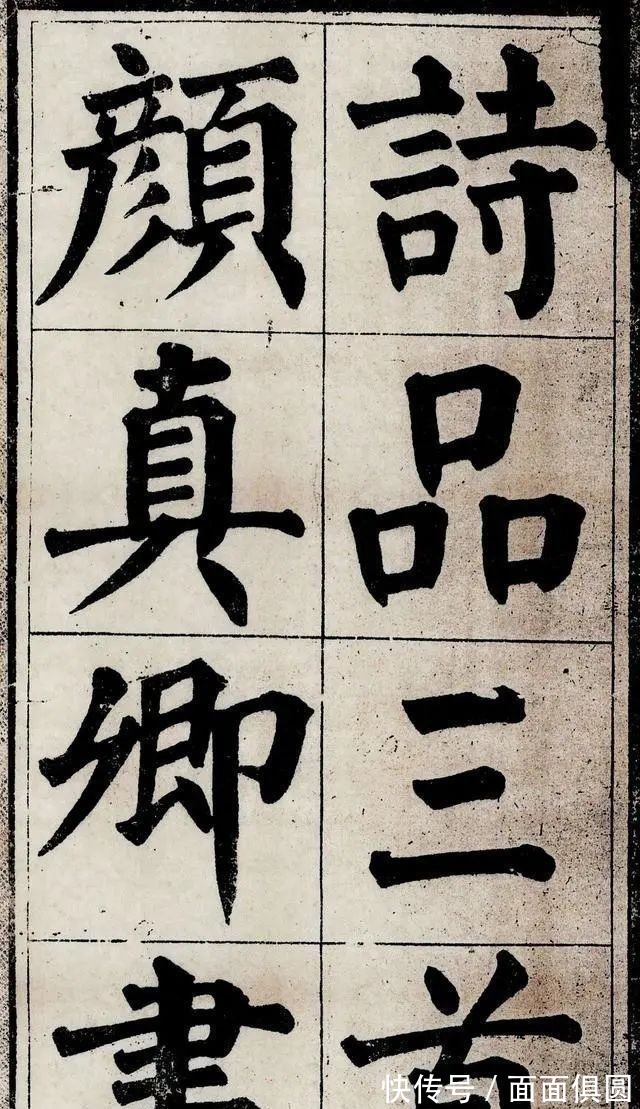 詩品三首
顔真卿書
快传号 / 面面俱圆